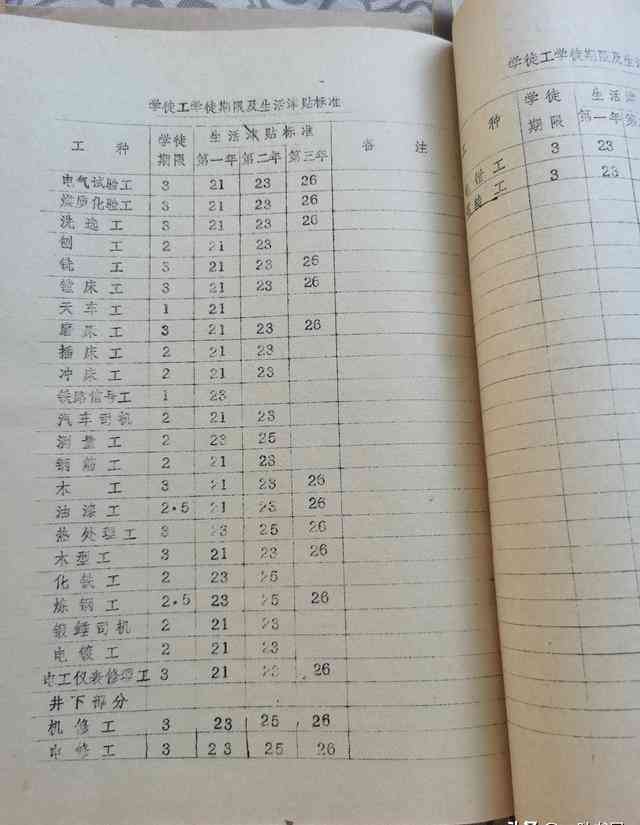 学徒工学徒期限及生活津贴标准
工 种 学徒期限 生活津贴标准 备 注
第一年 第二年 第三年
电气试验工 3 21 23 26
煤质化验工 3 21 23 26
洗选工 3 21 23 26
刨工 2 21 23
铣工 3 21 23 26
镗床工 3 21 23 26
天车工 1 21
磨床工 3 21 23 26
插床工 2 21 23
冲床工 2 21 23
铁路信号工 1 23
汽车司机 2 21 23
测量工 2 23 25
钢筋工 2 21 23
木工 3 21 23 26
油漆工 2·5 21 23 26
热处理工 3 23 25 26
木型工 3 21 23 26
化铁工 2 23 25
炼钢工 2·5 23 25 26
锻锤司机 2 21 23
电镀工 2 21 23
电工仪表修理工 3 21 23 26
井下部分
机修工 3 23 25 26
电修工 3 23 25 26
学徒工学徒期限及生活
种 学徒期限 生活津
工 第一年 第
工 3 23
工 3 23